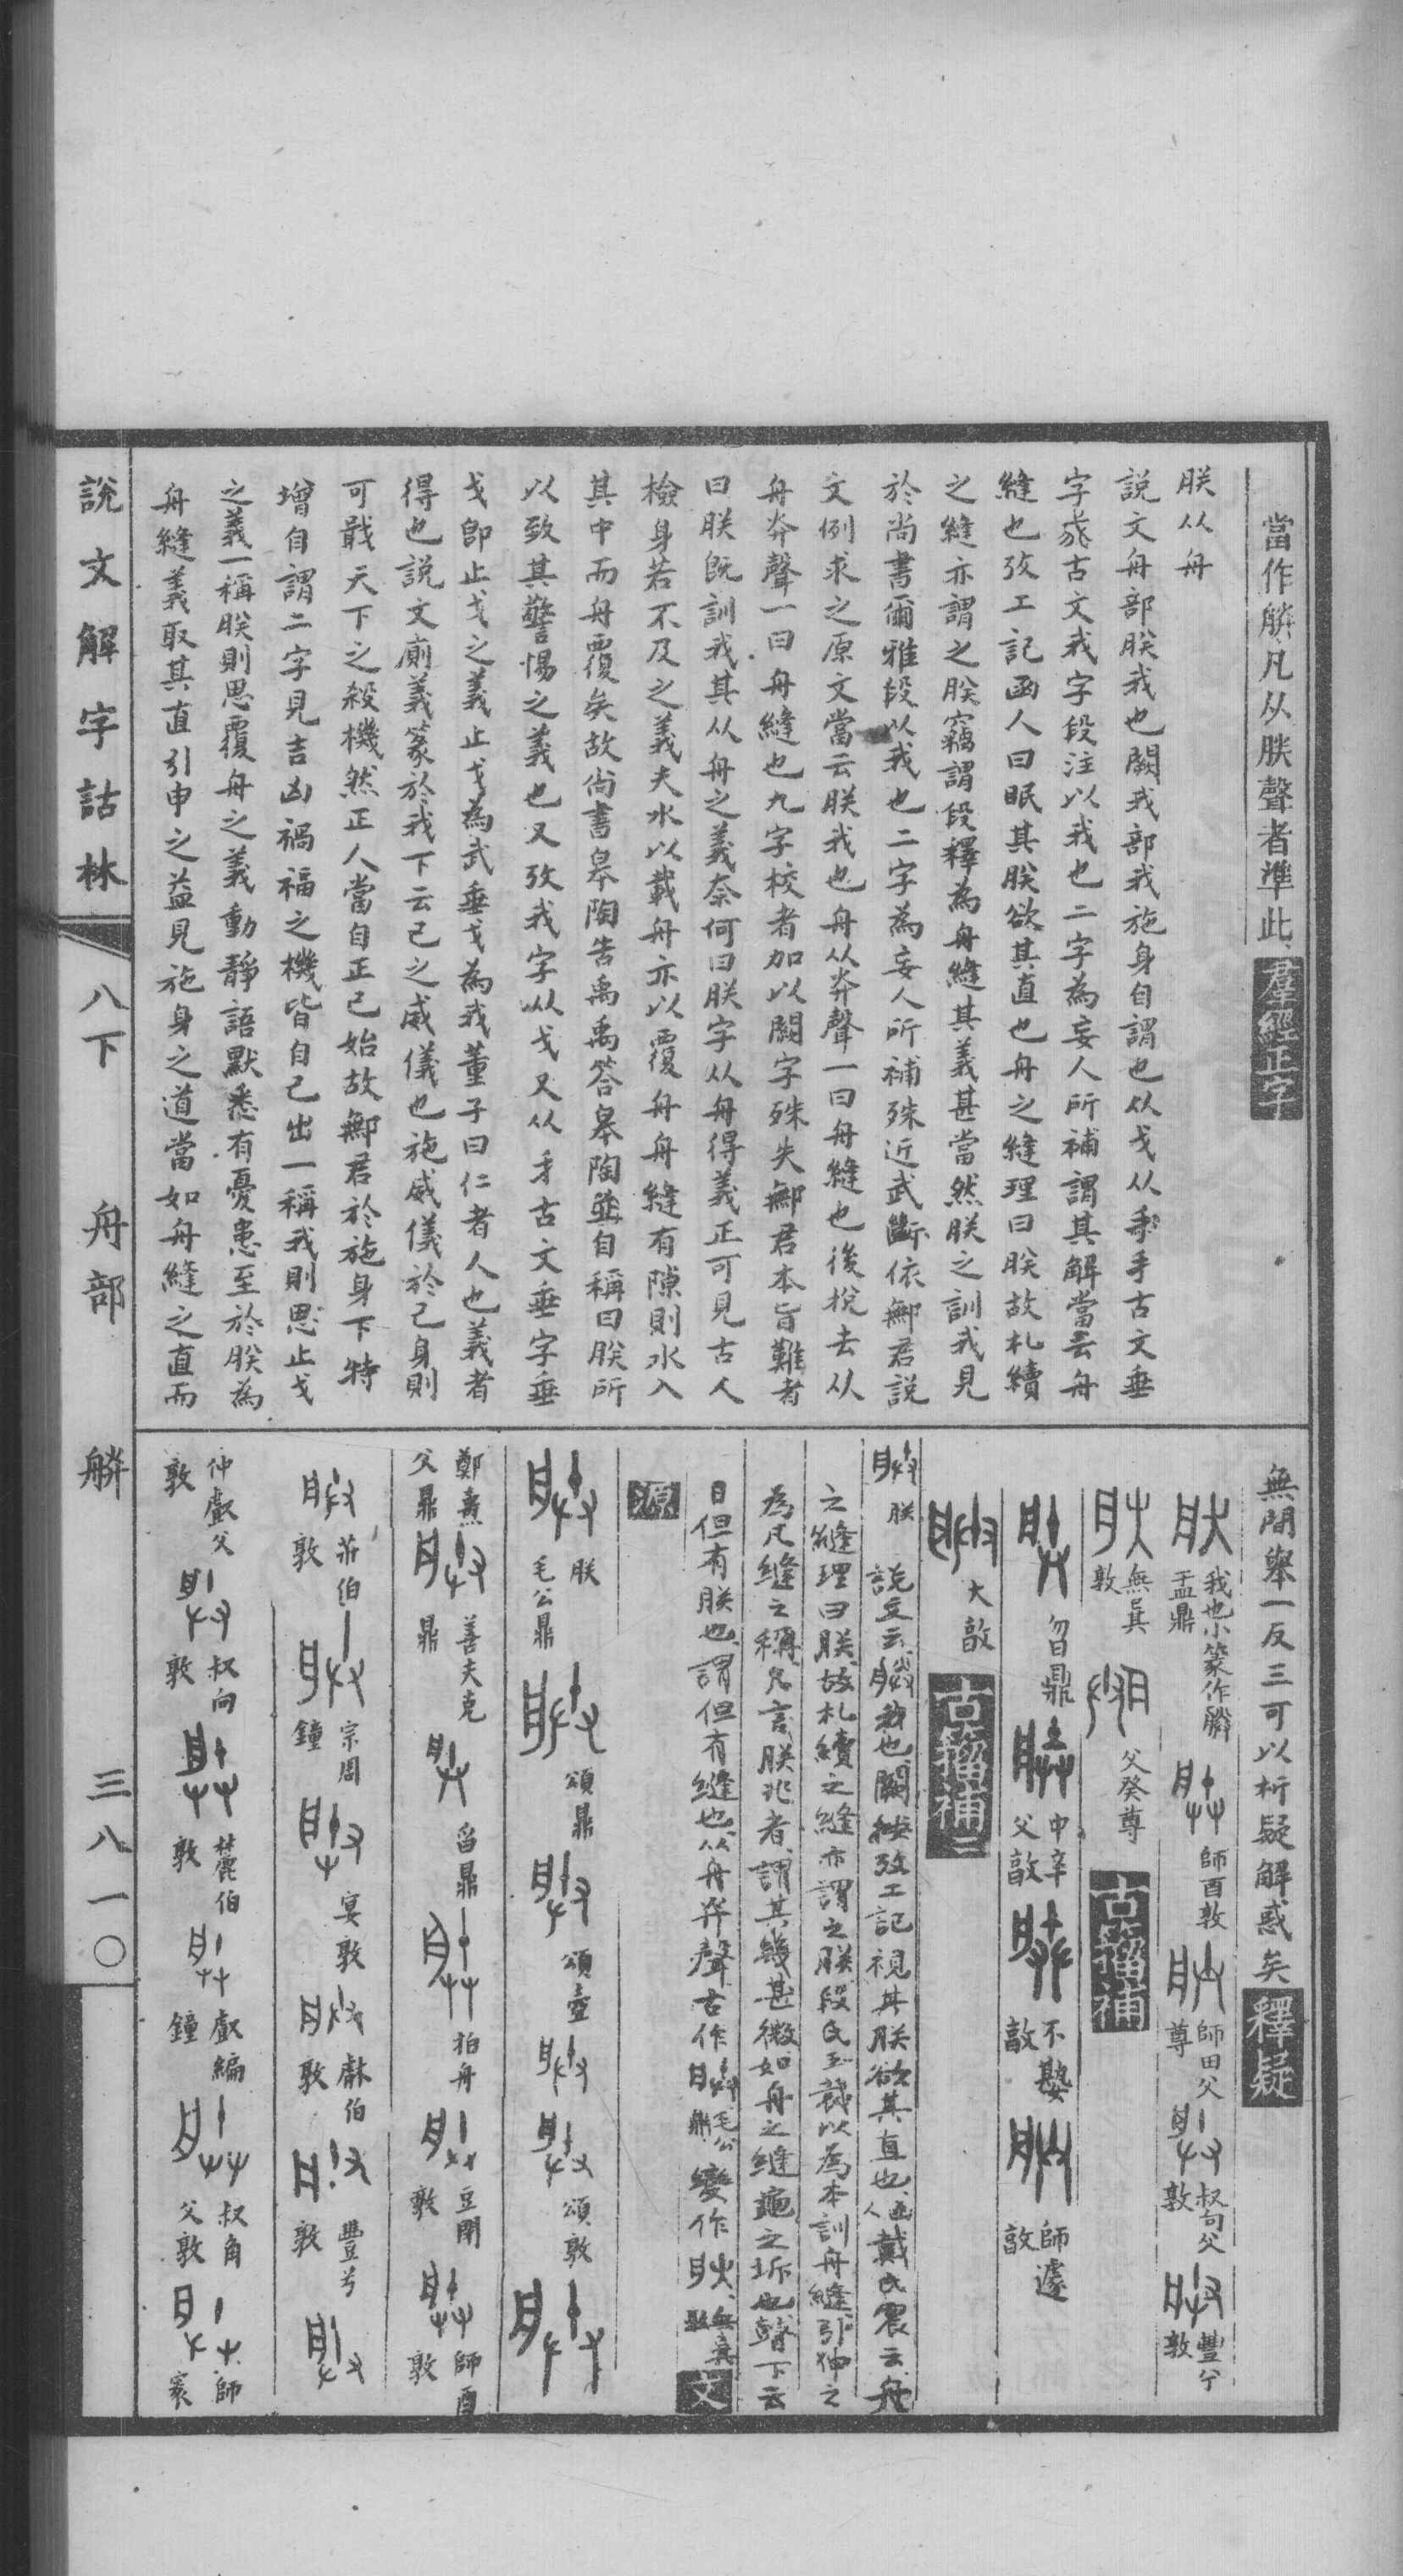 當作䑣凡从朕聲者準此羣經正字
朕从舟
說文舟部朕我也闕我部我施身自謂也从戈从𠄒𠄒古文垂
字𢦐古文我字段注以我也二字為妄人所補謂其解當云舟
縫也攷工記函人曰眡其朕欲其直也舟之縫理曰朕故札續
之縫亦謂之朕竊謂段釋為舟縫其義甚當然朕之訓我見
於尚書爾雅段以我也二字為妄人所補殊近武斷依鄦君說
文例求之原文當云朕我也舟从灷聲一曰舟縫也後挩去从
舟灷聲一曰舟縫也九字校者加以闕字殊失鄦君本旨難者
曰朕既訓我其从舟之義奈何曰朕字从舟得義正可見古人
檢身若不及之義夫水以載舟亦以覆舟舟縫有隙則水入
其中而舟覆矣故尚書皋陶告禹禹答皋陶並自稱曰朕所
以致其警惕之義也又攷我字从戈又从𠄒古文垂字垂
戈卽止戈之義止戈為武垂戈為我董子曰仁者人也義者
得也說文廟義篆於我下云己之威儀也施威儀於己身則
可戢天下之殺機然正人當自正己始故鄦君於施身下特
增自謂二字見吉凶禍福之機皆自己出一稱我則思止戈
之義一稱朕則思覆舟之義動靜語默悉有憂患至於朕為
舟縫義取其直引申之益見施身之道當如舟縫之直而
無間舉一反三可以析疑解惑矣釋疑
我也小篆作䑣盂鼎 師酉敦 師田父尊 叔句父敦 豐兮敦
無㠱敦 父癸尊 古籀補
曶鼎 中辛父敦 不𡢁敦 師遽敦
大敦 古籀補二
朕 說文云䑣我也闕按攷工記視其朕欲其直也函人戴氏震云舟
之縫理曰朕故札續之縫亦謂之朕段氏玉裁以為本訓舟縫引伸之
為凡縫之稱凡言朕兆者謂其幾甚微如舟之縫龜之坼也瞽下云
目但有朕也謂但有縫也从舟灷聲古作 毛公鼎 變作 無㠱敦 文
源
朕 毛公鼎 頌鼎 頌壺 頌敦
鄭㷼父鼎 善夫克鼎 曶鼎 拍舟 豆閉敦 師酉敦
莽伯敦 宗周鐘 宴敦 㝬伯敦 豐兮敦
仲㪤父敦 叔向敦 㯟伯敦 㪤編鐘 叔角父敦 師㝨
說文解字詁林 八下 舟部 䑣 三八一〇